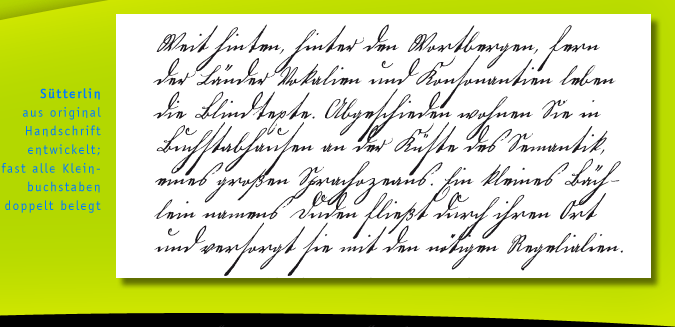 Sütterlin
aus original
Handschrift
entwickelt;
fast alle Klein-
buchstaben
doppelt belegt
Weit hinten, hinter den Wortbergen, fern
der Länder Vokalien und Konsonantien leben
die Blindtexte. Abgeschieden wohnen Sie in
Buchstabhausen an der Küste des Semantik,
eines großen Sprachozeans. Ein kleines Bäch-
lein namens Duden fließt durch ihren Ort
und versorgt sie mit den nötigen Regelialien.